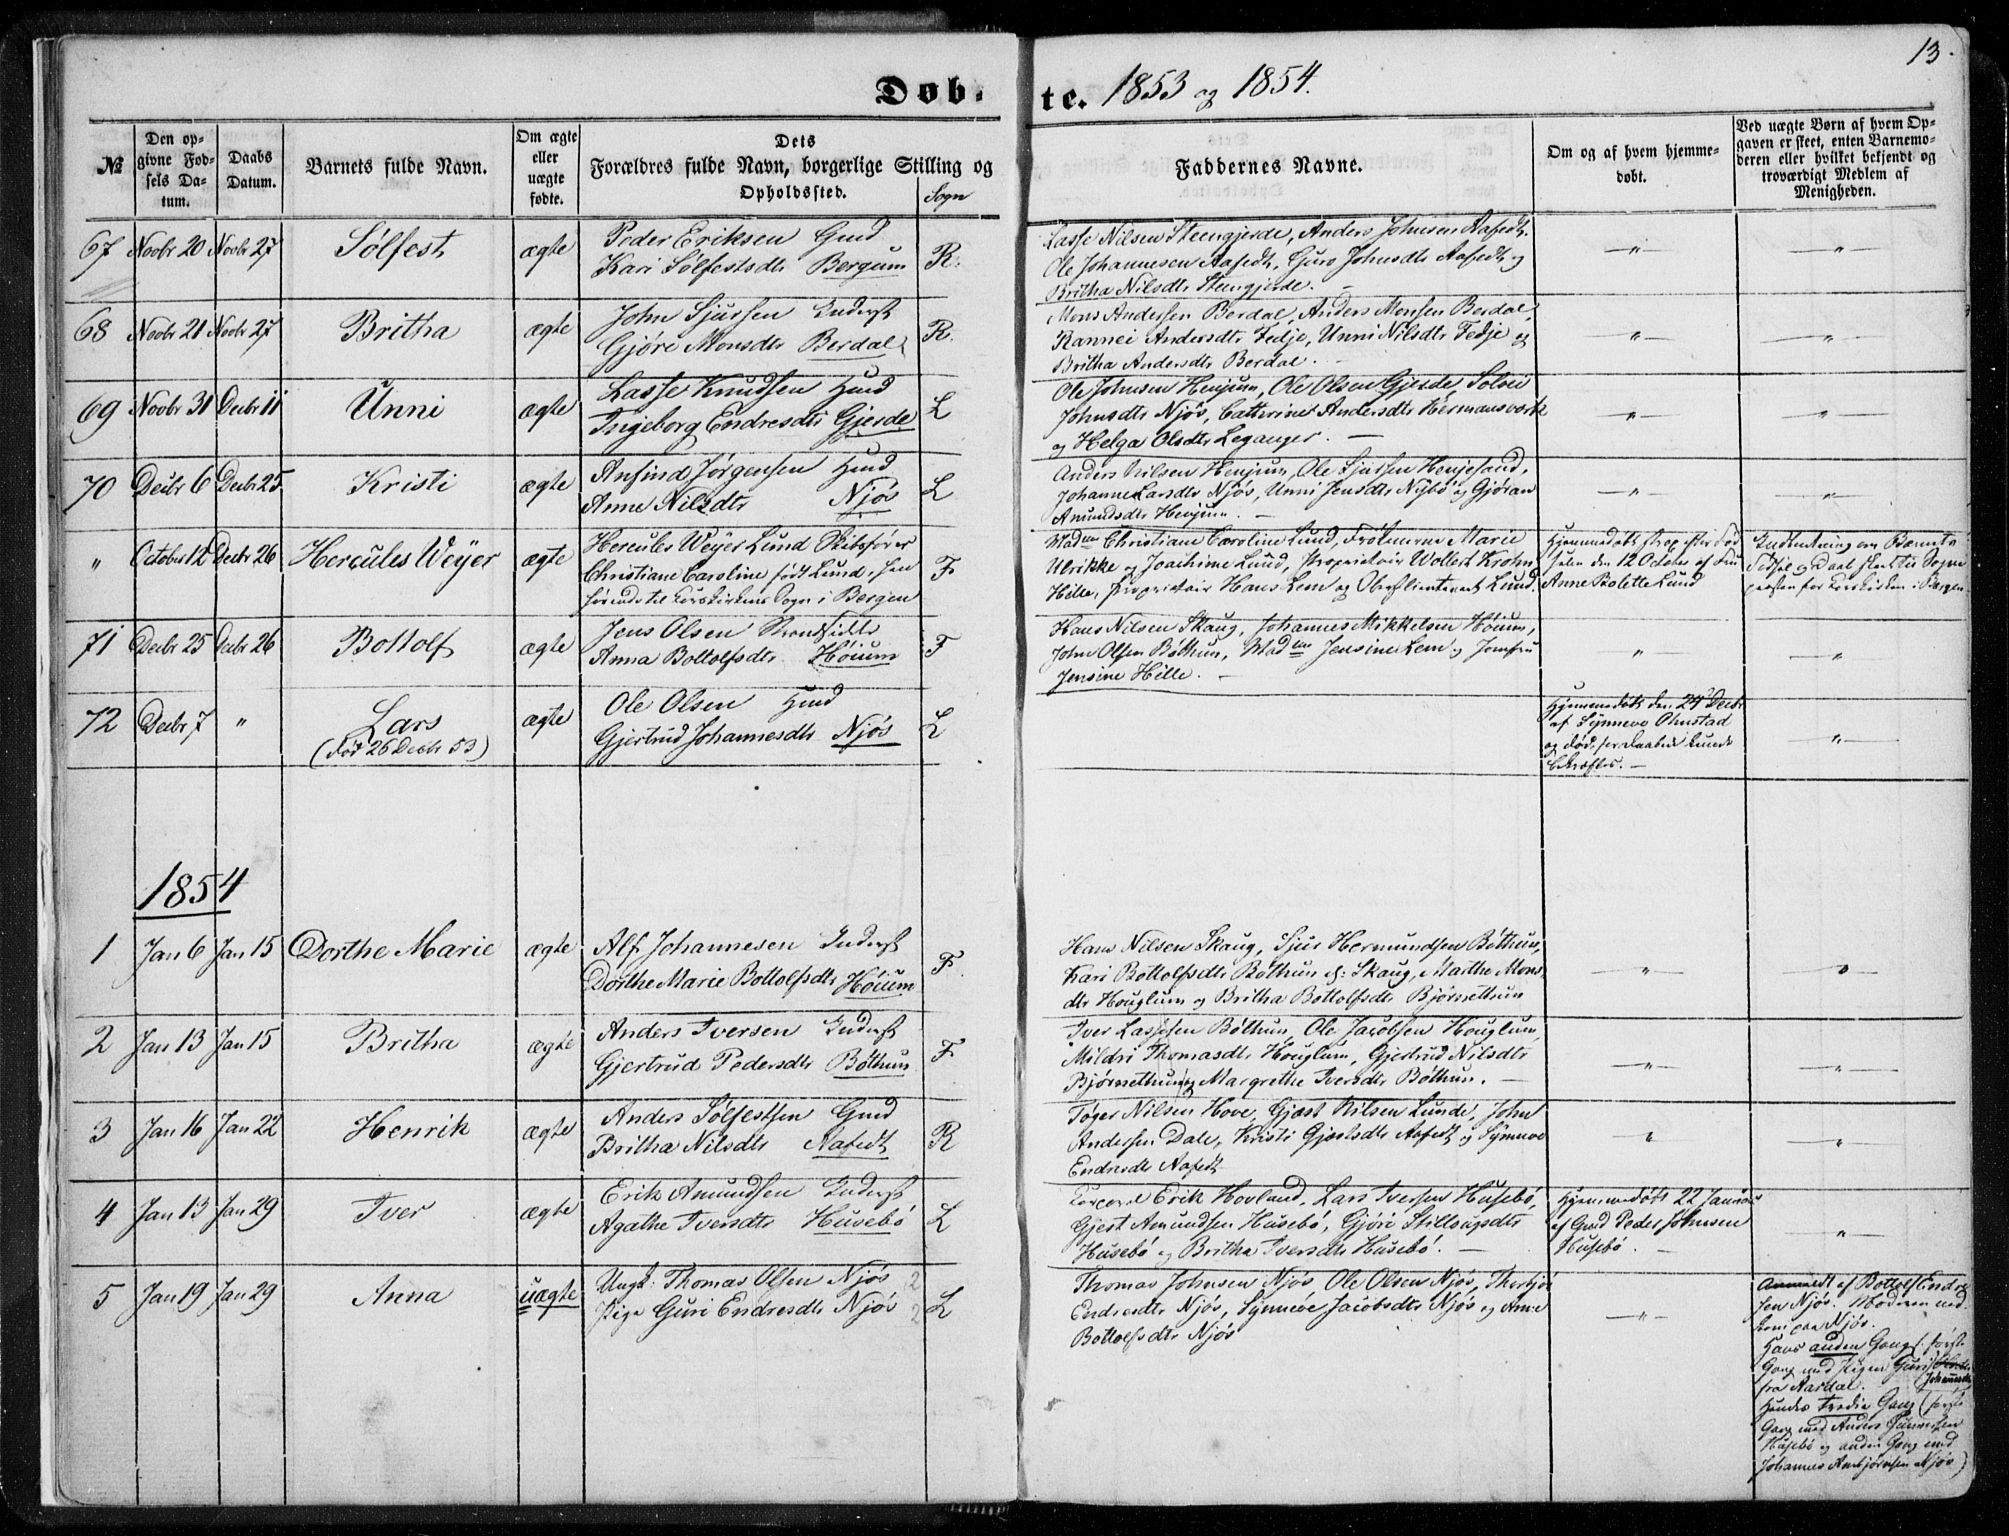 13.
Døb-
te. 1853 og 1854.
№
Den op-
givne Fød-
sels Da-
tum.
Daabs
Datum.
Barnets fulde Navn.
Om ægte
eller
uægte
fødte.
Dets
Forældres fulde Navn, borgerlige Stilling og
Opholdssted.
Sogn
Faddernes Navne.
Om og af hvem hjemme-
døbt.
Ved uægte Børn af hvem Op-
gaven er skeet, enten Barnemo-
deren eller hvilket bekjendt og
troværdigt Medlem af
Menigheden.
67 Novbr 20 Novbr 27 Sølfest ægte Peder Eriksen Gmd
Kari Sølfestsdtr Bergum R.
Lasse Nilsen Steengjerde, Anders Johnsen Aafedt,
Ole Johannesen Aafedt, Guro Johnsdtr Aafedt og
Britha Nilsdtr Steengjerde. -
68 Novbr 21 Novbr 27 Britha ægte John Sjursen Inderst
Gjøre Monsdtr Berdal R.
Mons Andersen Berdal, Anders Monsen Berdal,
Rannei Andersdtr Fedje, Unni Nilsdtr Fedje og
Britha Andersdtr Berdal. -
69 Novbr 31 Decbr 11 Unni ægte Lasse Knudsen Hmd
Ingeborg Endresdtr Gjerde L
Ole Johnsen Henjum, Ole Olsen Gjerde, Solvei
Johnsdtr Njøs, Catherine Andersdtr Hermansverk
og Helga Olsdtr Leganger. -
70 Decbr 6 Decbr 25 Kristi ægte Anfind Jørgensen Hmd
Anne Nilsdtr Njøs L
Anders Nilsen Henjum, Ole Sjursen Henjesand,
Johanne Larsdtr Njøs, Unni Jensdtr Nybø og Gjøran
Amundsdtr Henjum. -
" October 12 Decbr 26 Hercules Weyer ægte Hercules Weyer Lund Skibsfører
Christiane Caroline født Lund, hen
hørende til Korskirkens Sogn i Bergen F
Madme Christiane Caroline Lund, Frøknerne Marie
Ulrikke og Joachime Lund, Proprietair Wollert Krohn
Hille, Proprietair Hans Lem og Oberstlieutenant Lund.
Hjemmedøbt strax efter Fød
selen den 12 October af Fru
Anne Bolette Lund
Indberetning om Barnets
Fødsel og Daab sendt til Sogne
præsten for Korskirken i Bergen
71 Decbr 25 Decbr 26 Bottolf ægte Jens Olsen Strandsidder
Anna Bottolfsdtr Høium F
Hans Nilsen Skaug, Johannes Mikkelsen Høium,
John Olsen Bøthun, Madme Jensine Lem og Jomfru
Jensine Hille. -
72 Decbr 7 " Lars
(død 26 Decbr 53)
ægte Ole Olsen Hmd
Gjertrud Johannesdtr Njøs L
Hjemmedøbt den 24 Decbr
af Synneve Ohnstad
og død, før Daaben kunde
bekræftes. -
1854
1 Jan 6 Jan 15 Dorthe Marie ægte Alf Johannesen Inderst
Dorthe Marie Bottolfsdtr Høium F.
Hans Nilsen Skaug, Sjur Hermundsen Bøthun,
Kari Bottolfsdtr Bøthun o: Skaug, Marthe Mons
dtr Houglum og Britha Bottolfsdtr Bjørnethun
2 Jan 13 Jan 15 Britha ægte Anders Iversen Inderst
Gjertrud Pedersdtr Bøthun F
Iver Lassesen Bøthun, Ole Jacobsen Houglum,
Mildri Thomasdtr Houglum, Gjertrud Nilsdtr
Bjørnethun og Margrethe Iversdtr Bøthun. -
3 Jan 16 Jan 22 Henrik ægte Anders Sølfestsen Gmd
Britha Nilsdtr Aafedt R
Tøger Nilsen Hove, Gjest Nilsen Lunde, John
Andersen Dale, Kristi Gjestsdtr Aafedt og Synneve
Endresdtr Aafedt
4 Jan 13 Jan 29 Iver ægte Erik Amundsen Inderst
Agathe Iversdtr Husebø L
Corporal Erik Hovland, Lars Iversen Husebø,
Gjest Amundsen Husebø, Gjøri Stillougsdtr
Husebø og Britha Iversdtr Husebø. -
Hjemmedøbt 22 Januar
af Gmd Peder Johnsen
Husebø. -
5 Jan 19 Jan 29 Anna uægte Ungk: Thomas Olsen Njøs
Pige Guri Endresdtr Njøs L
Thomas Johnsen Njøs, Ole Olsen Njøs, Thorbjør
Endresdtr Njøs, Synneve Jacobsdtr Njøs og Anne
Bottolfsdtr Njøs
Anmeldt af Bottolf Endre
sen Njøs. Moderen ned
kom paa Njøs.
Hans anden Gang (første
Gang med Pigen Guri
Johannesdtr
fra Aardal.
Hendes tredie Gang (første
Gang med Anders
Husebø og anden Gang med
Johannes Ambjørnsen Njøs)